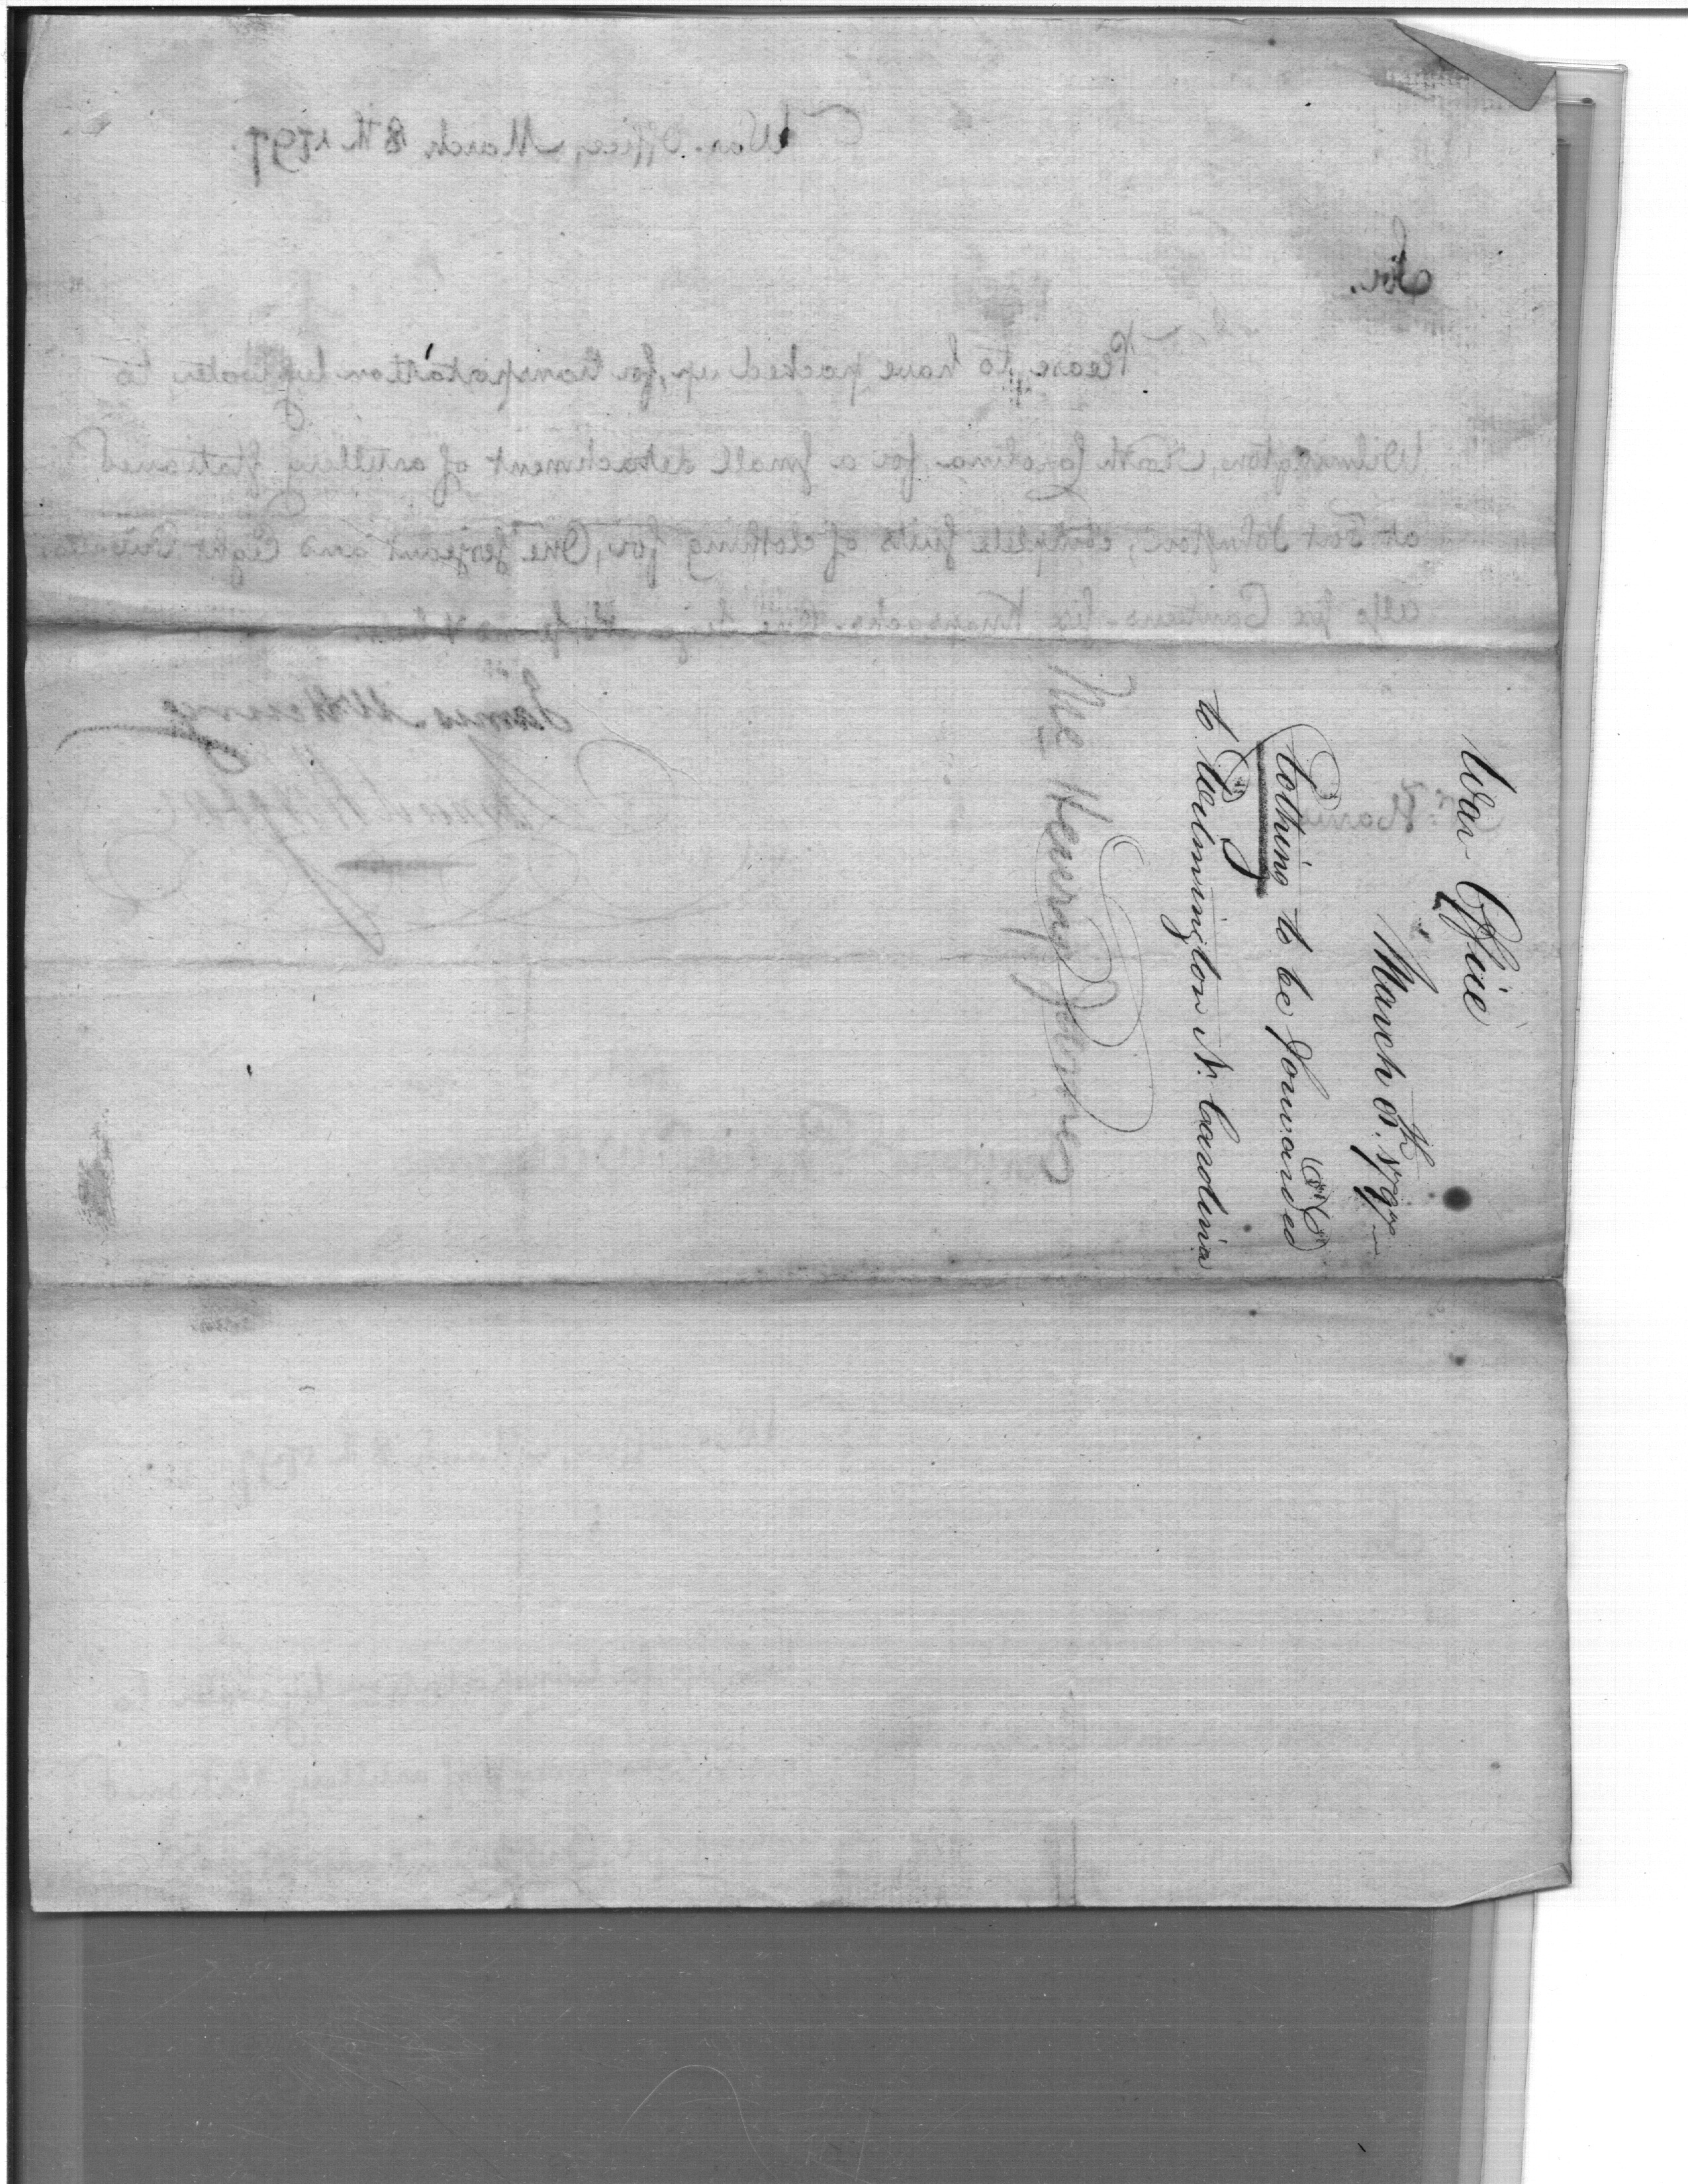 War Office
March 8th. 1797
Clothing to be forwarded
to Wilmington N. Carolina
Mc Henry James
War Office, March 8th 1797.
Sir.
Please to have packed up, for transportation by water, to
Wilmington, North Carolina, for a small detachment of artillery stationed
at Fort Johnston, complete suits of clothing for, One Serjeant and Eight Privates.
Also six Canteens six Knapsacks
James McHenry